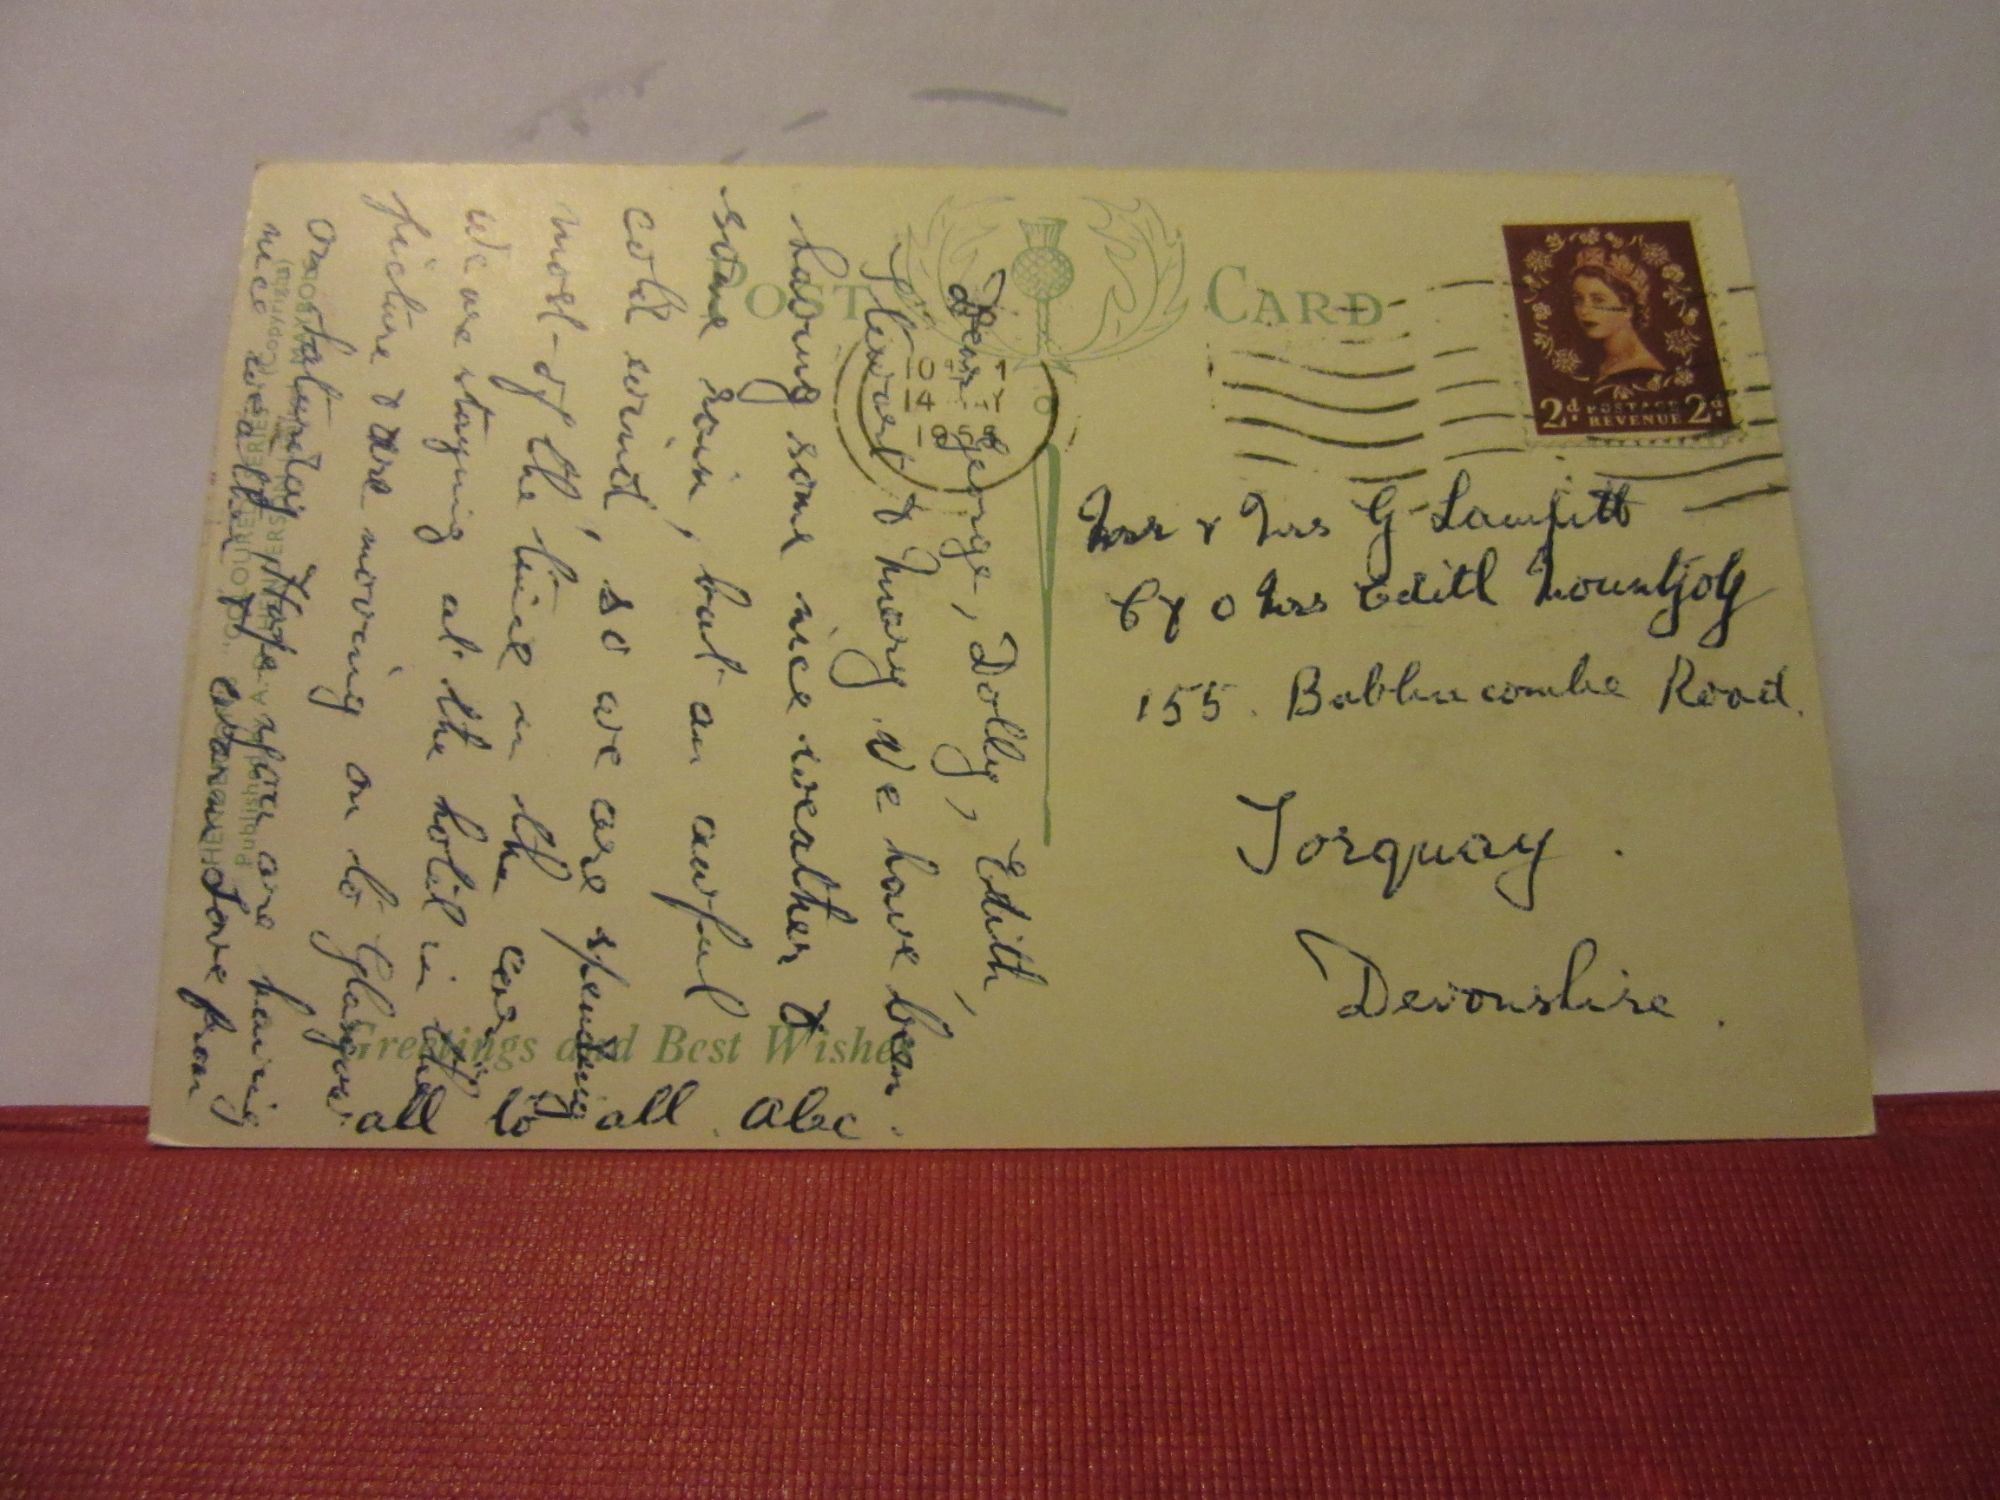 POST CARD
2d POSTAGE REVENUE 2d
14
195
Mr & Mrs G Lampitt
Mrs Edith Mountjoy
155. Babbacombe Road.
Torquay.
Devonshire.
Dear George, Dolly, Edith,
& Mary. We have been
having some nice weather &
some rain, but an awful
cold wind, so we are spending
most of the time in the car.
We are staying at the hotel in the
picture & are moving on to Glasgow
on Saturday. Hope you are having
nice weather. Love from
all to all. Alec.
Greetings and Best Wishes